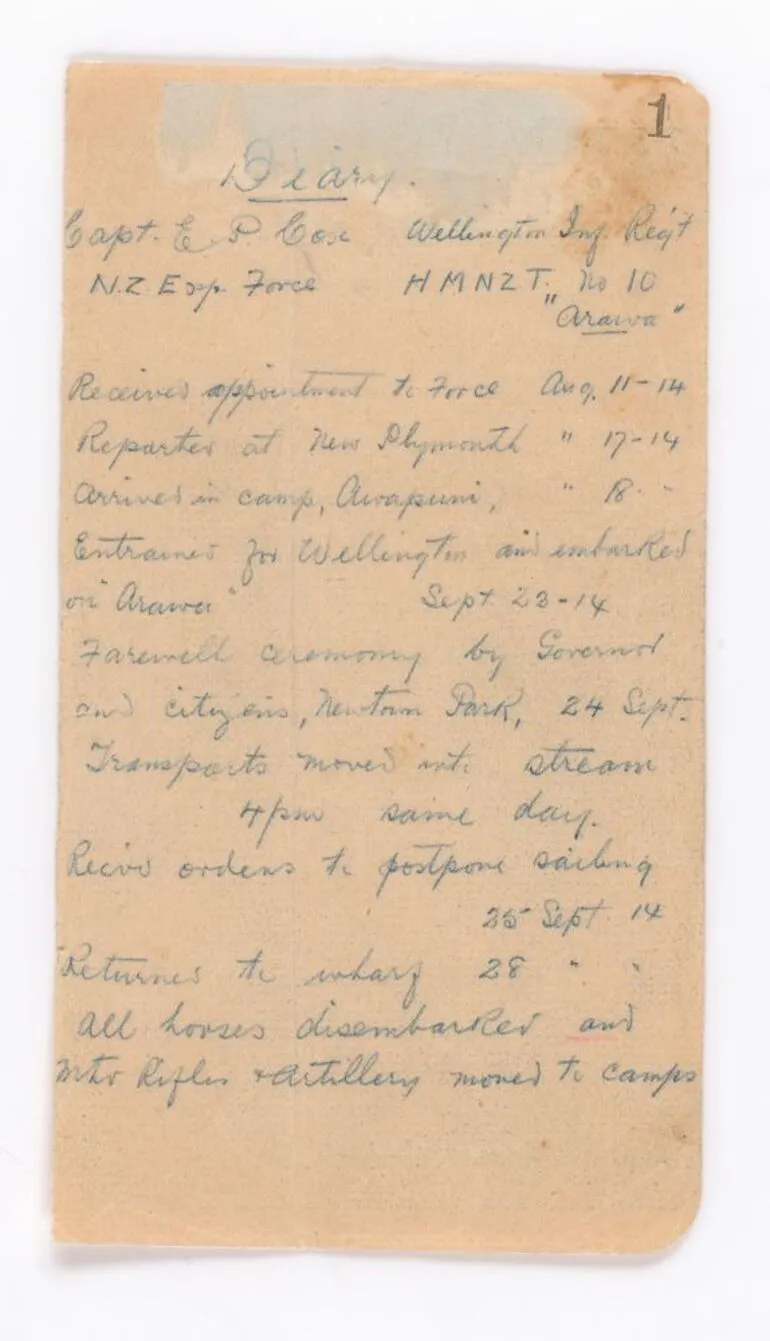 1
Diary.
Capt. E. P. Cox Wellington Inf. Reg't
N.Z. Exp. Force H M N Z T. No 10
"Arawa"
Received appointment to Force Aug. 11-14
Reported at New Plymouth " 17-14
Arrived in camp, Awapuni, " 18 " "
Entrained for Wellington and embarked
on "Arawa" Sept. 23-14
Farewell ceremony by Governor
and citizens, Newtown Park, 24 Sept.
Transports moved into stream
4pm same day.
Recived orders to postpone sailing
25 Sept. 14
Returned to wharf 28 " "
All horses disembarked and
Mtd Rifles & Artillery moved to camps